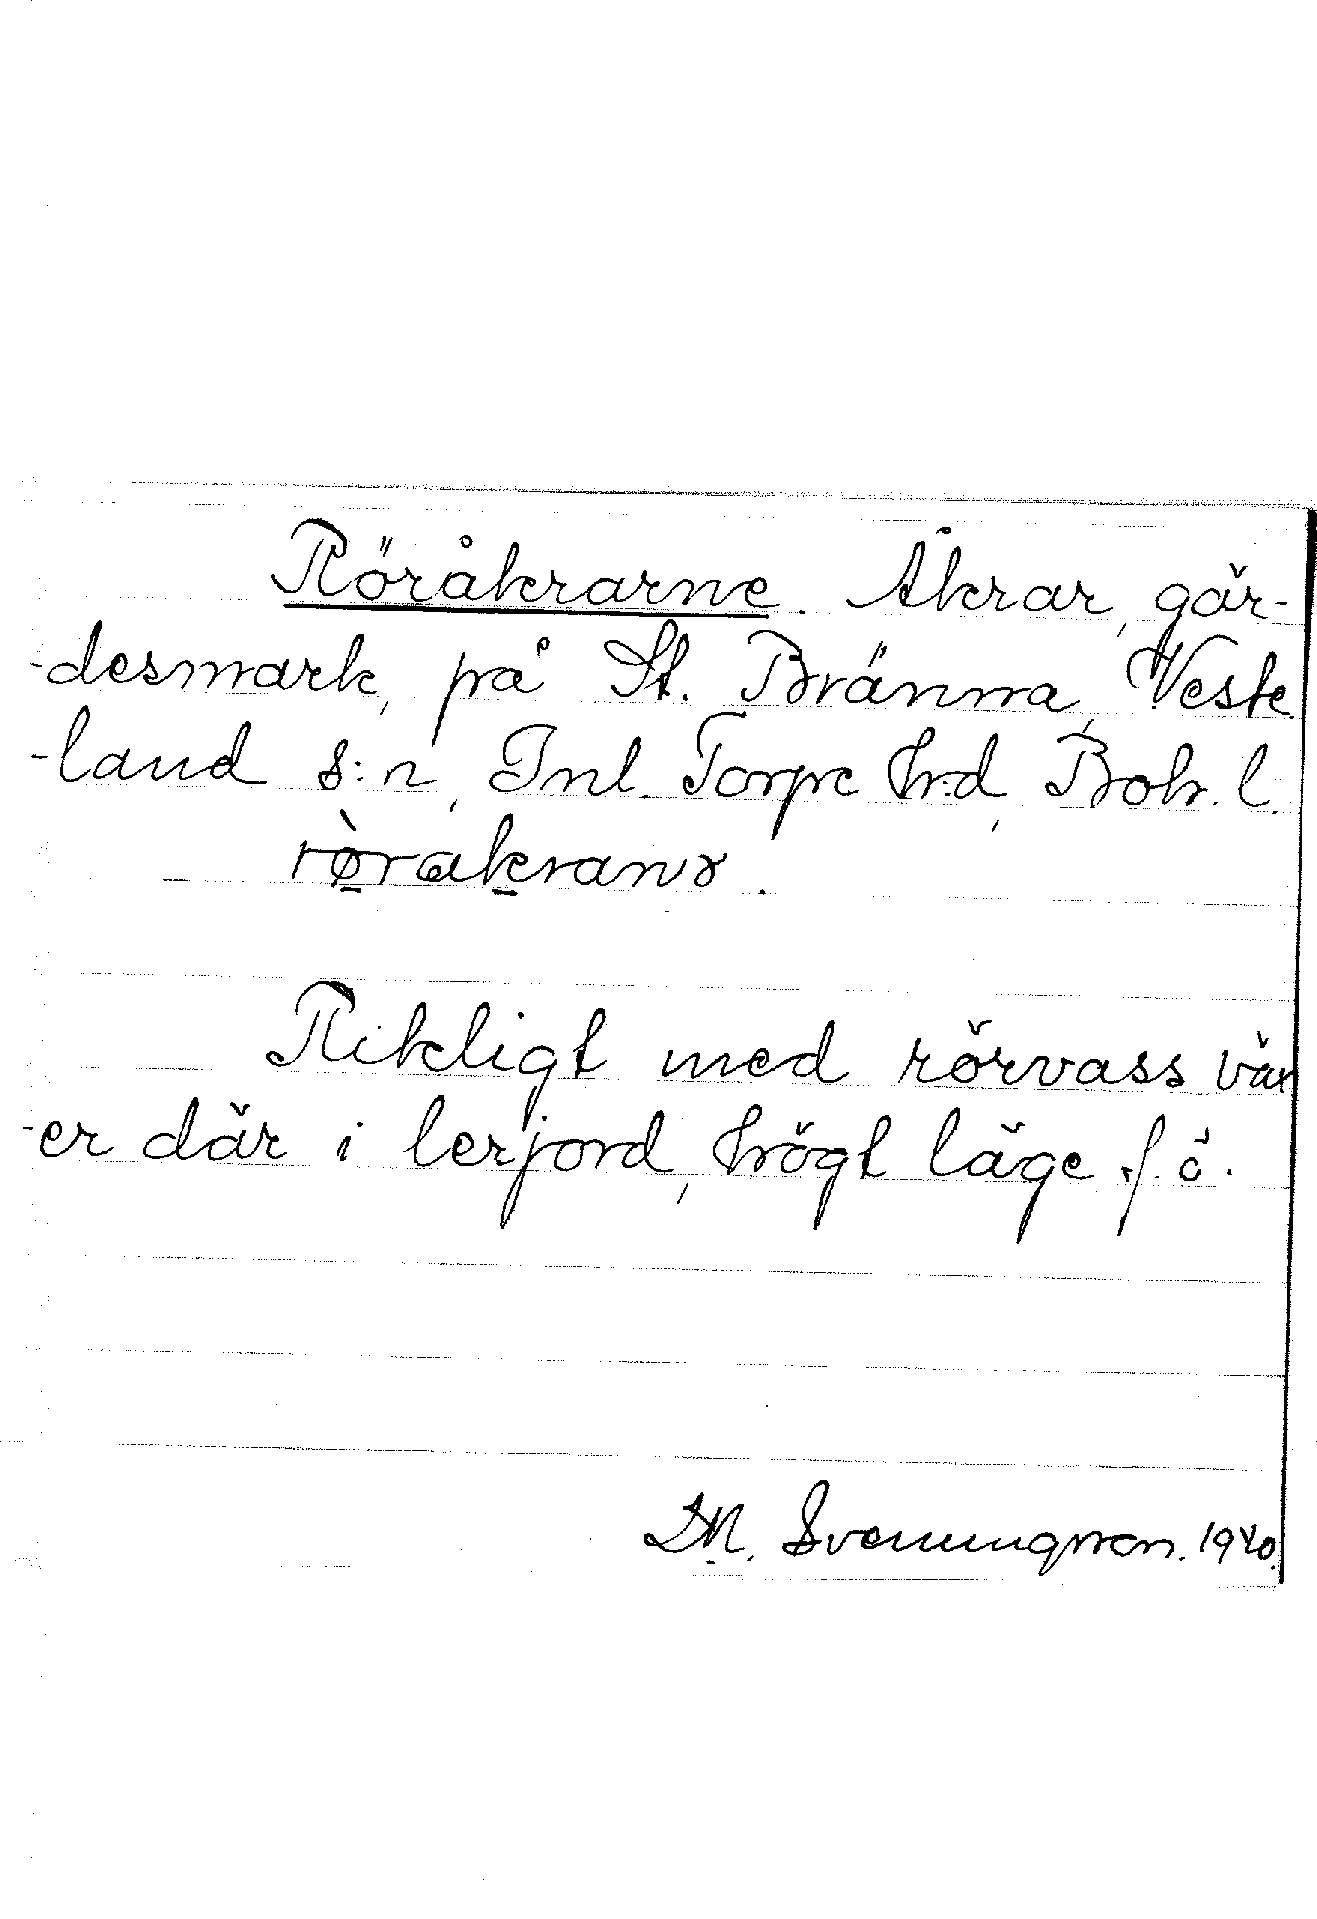 Röråkrarne. Åkrar, går-
-desmark, på St. Bränna, Veste
-land s:n, Inl. Torpe hrd, Boh. l.
røråkranɤ.
Rikligt med rörvass väx
-er där i lerjord, högt läge f. ö.
Svenungsson. 1940.